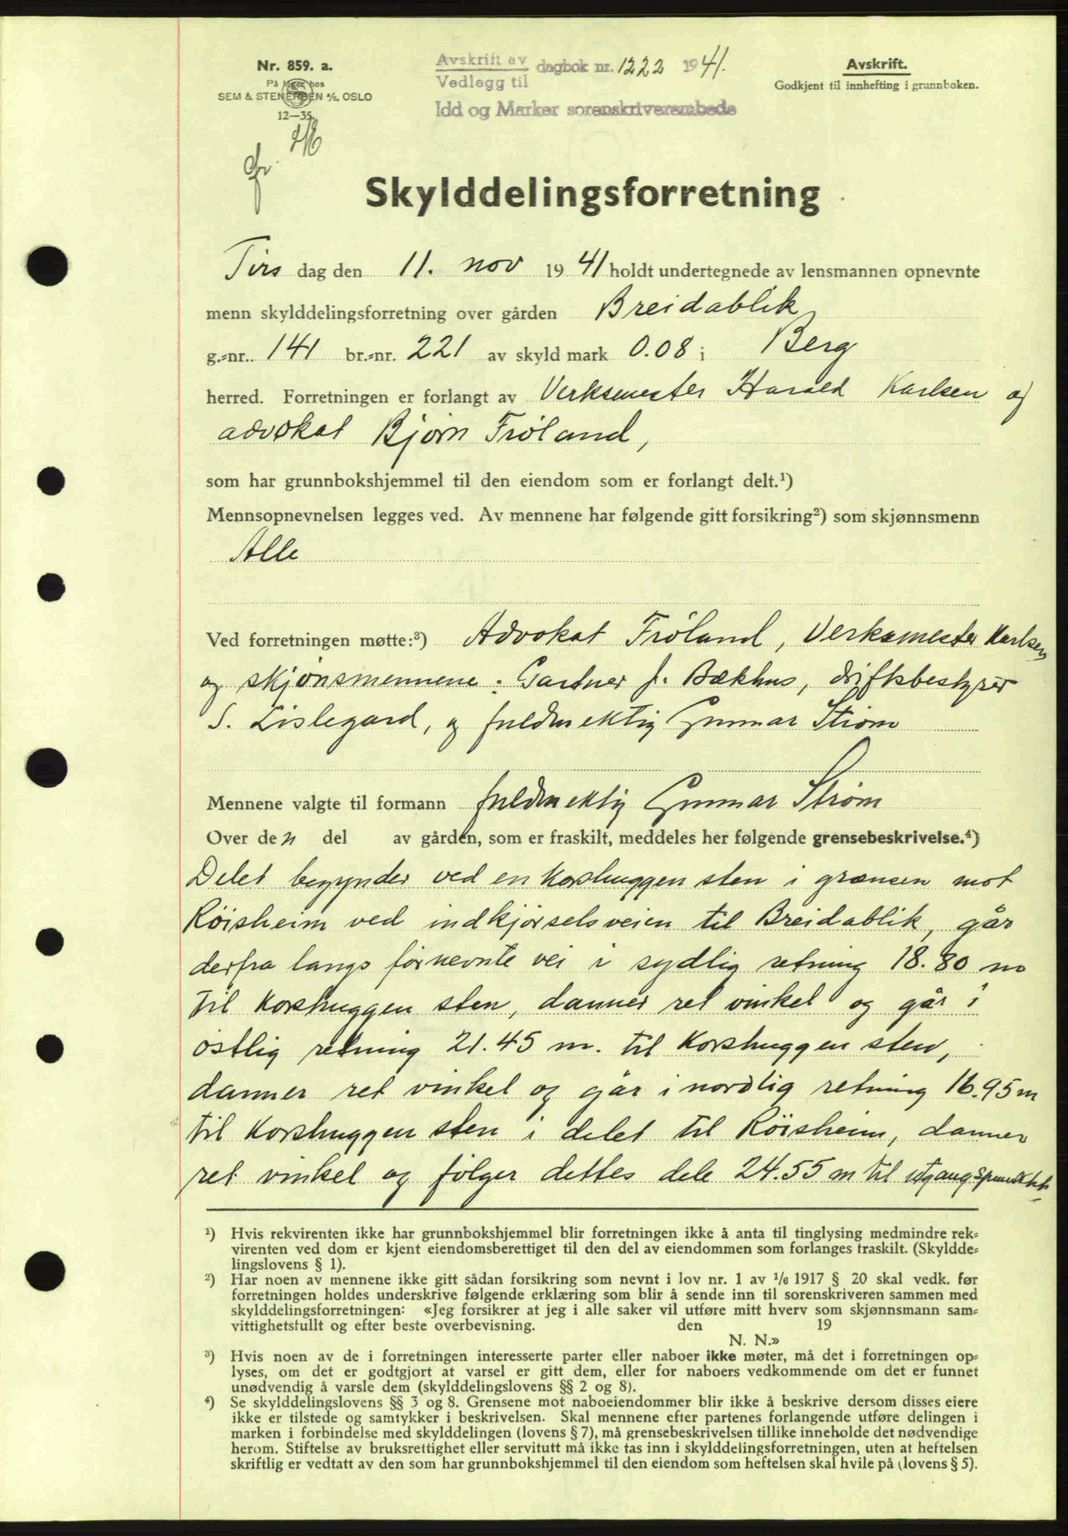 Nr. 859. a.
På lager hos
SEM & STENERSEN A/S, OSLO
12—35.
Avskrift av dagbok nr. 1222 1941.
Vedlegg til
Idd og Marker sorenskriverembede
Avskrift.
Godkjent til innhefting i grunnboken.
Skylddelingsforretning
Tirs dag den 11. nov 1941 holdt undertegnede av lensmannen opnevnte
menn skylddelingsforretning over gården Breidablik
g.-nr. 141 br.-nr. 221 av skyld mark 0.08 i Berg
herred. Forretningen er forlangt av Verksmester Harald Karlsen og
advokat Bjørn Frøland,
som har grunnbokshjemmel til den eiendom som er forlangt delt.¹)
Mennsopnevnelsen legges ved. Av mennene har følgende gitt forsikring²) som skjønnsmenn
Alle
Ved forretningen møtte:³) Advokat Frøland, Verksmester Karlsen
og skjønsmennene: Gartner J. Bækhus, driftsbestyrer
S. Lislegard, og fuldmektig Gunnar Strøm
Mennene valgte til formann fuldmektig Gunnar Strøm
Over den del av gården, som er fraskilt, meddeles her følgende grensebeskrivelse.⁴)
Delet begynder ved en korshuggen sten i grænsen mot
Röisheim ved indkjørselsveien til Breidablik, går
derfra langs førnevnte vei i sydlig retning 18.80 m
til korshuggen sten, danner ret vinkel og går i
østlig retning 21.45 m. til korshuggen sten,
danner ret vinkel og går i nordlig retning 16.95 m
til korshuggen sten i delet til Röisheim, danner
ret vinkel og følger dettes dele 24.55 m til utgangspunktet.
¹) Hvis rekvirenten ikke har grunnbokshjemmel blir forretningen ikke å anta til tinglysing medmindre rek-
virenten ved dom er kjent eiendomsberettiget til den del av eiendommen som forlanges fraskilt. (Skyldde-
lingslovens § 1).
²) Har noen av mennene ikke gitt sådan forsikring som nevnt i lov nr. 1 av 1/6 1917 § 20 skal vedk. før
forretningen holdes underskrive følgende erklæring som blir å sende inn til sorenskriveren sammen med
skylddelingsforretningen: «Jeg forsikrer at jeg i alle saker vil utføre mitt hverv som skjønnsmann sam-
vittighetsfullt og efter beste overbevisning. den 19
N. N.»
³) Hvis noen av de i forretningen interesserte parter eller naboer ikke møter, må det i forretningen op-
lyses, om det er godtgjort at varsel er gitt dem, eller for naboers vedkommende om det er funnet
unødvendig å varsle dem (skylddelingslovens §§ 2 og 8).
⁴) Se skylddelingslovens §§ 3 og 8. Grensene mot naboeiendommer blir ikke å beskrive dersom disses eiere
ikke er tilstede og samtykker i beskrivelsen. Skal mennene efter partenes forlangende utføre delingen i
marken i forbindelse med skylddelingen (lovens § 7), må grensebeskrivelsen tillike inneholde det nødvendige
herom. Stiftelse av bruksrettighet eller servitutt må ikke tas inn i skylddelingsforretningen, uten at heftelsen
skriftlig er vedtatt av den som har grunnbokshjemmel til den eiendom som heftelsen skal hvile på (lovens § 5).